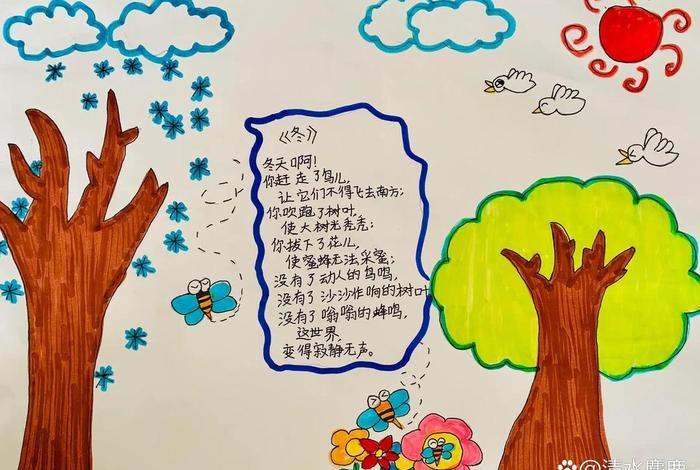 《冬》
冬天啊！
你赶走了鸟儿，
让它们不得飞去南方；
你吹跑了树叶，
使大树光秃秃；
你拔下了花儿，
使蜜蜂无法采蜜；
没有了动人的鸟鸣，
没有了沙沙作响的树叶
没有了嗡嗡的蜂鸣，
这世界，
变得寂静无声。
@清水鹿鹿